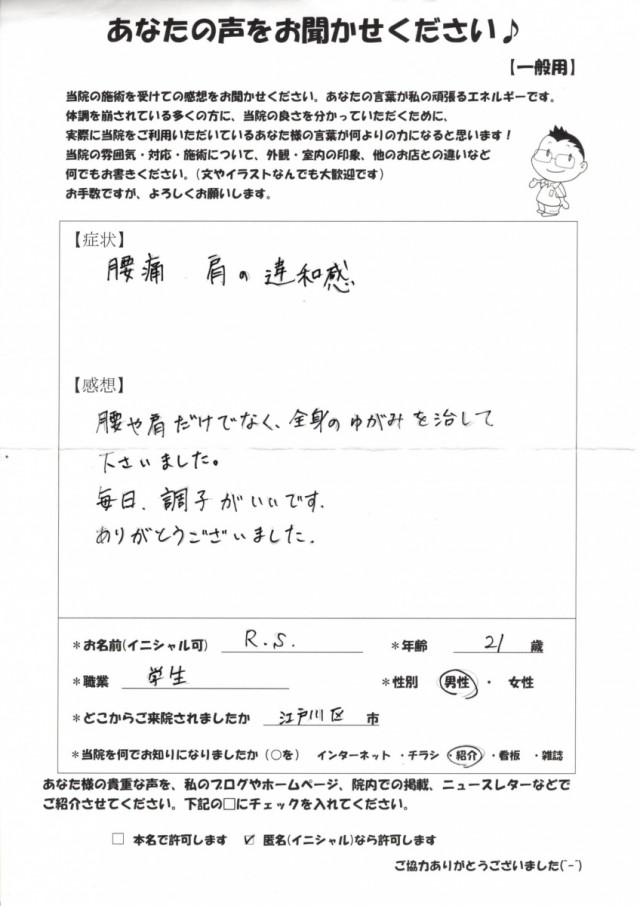 あなたの声をお聞かせください♪
【一般用】
当院の施術を受けての感想をお聞かせください。あなたの言葉が私の頑張るエネルギーです。
体調を崩されている多くの方に、当院の良さを分かっていただくために、
実際に当院をご利用いただいているあなた様の言葉が何よりの力になると思います！
当院の雰囲気・対応・施術について、外観・室内の印象、他のお店との違いなど
何でもお書きください。（文やイラストなんでも大歓迎です）
お手数ですが、よろしくお願いします。
【症状】
腰痛 肩の違和感
【感想】
腰や肩だけでなく、全身のゆがみを治して
下さいました。
毎日、調子がいいです。
ありがとうございました。
＊お名前(イニシャル可) R.S. ＊年齢 21 歳
＊職業 学生 ＊性別 男性 ・ 女性
＊どこからご来院されましたか 江戸川区 市
＊当院を何でお知りになりましたか（○を） インターネット ・チラシ ・紹介 ・看板 ・雑誌
あなた様の貴重な声を、私のブログやホームページ、院内での掲載、ニュースレターなどで
ご紹介させてください。下記の□にチェックを入れてください。
□ 本名で許可します ☑ 匿名(イニシャル)なら許可します
ご協力ありがとうございました(^-^)